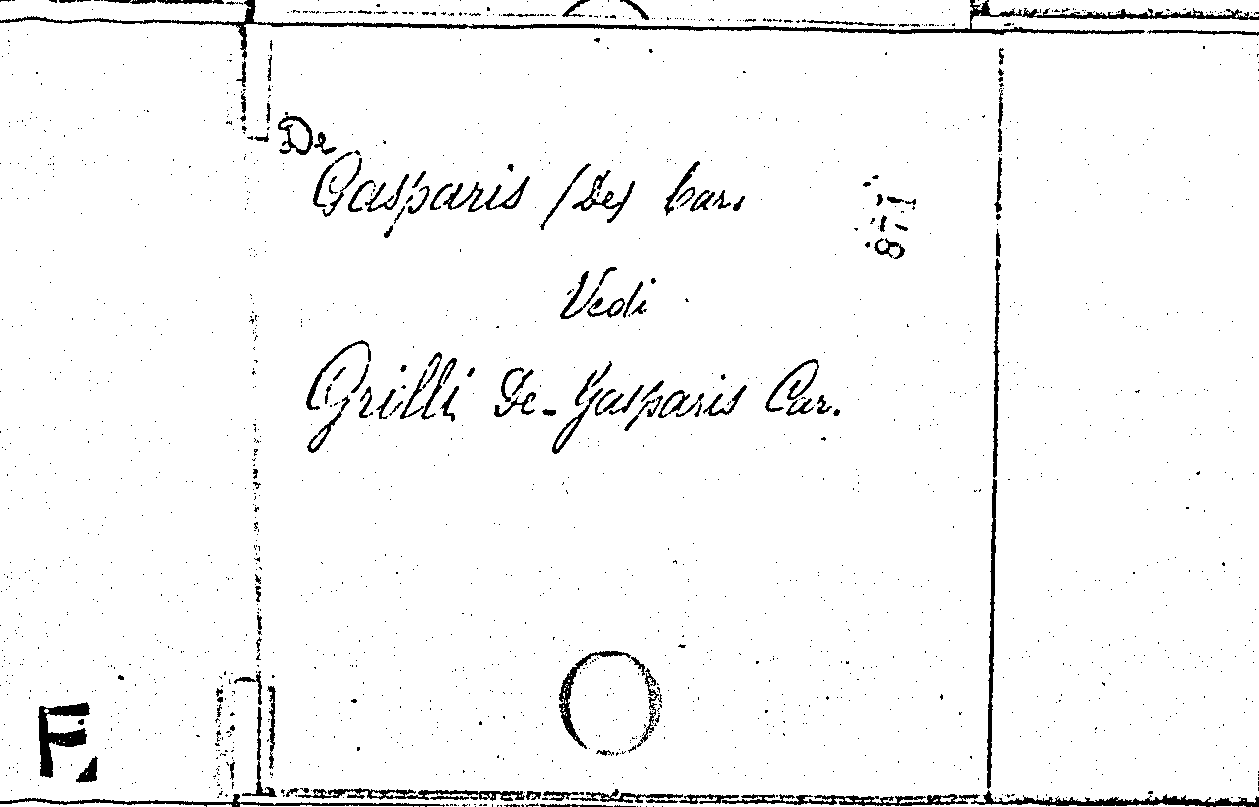 De
Gasparis (De) Car.
Vedi
Grilli De-Gasparis Car.
877
F.